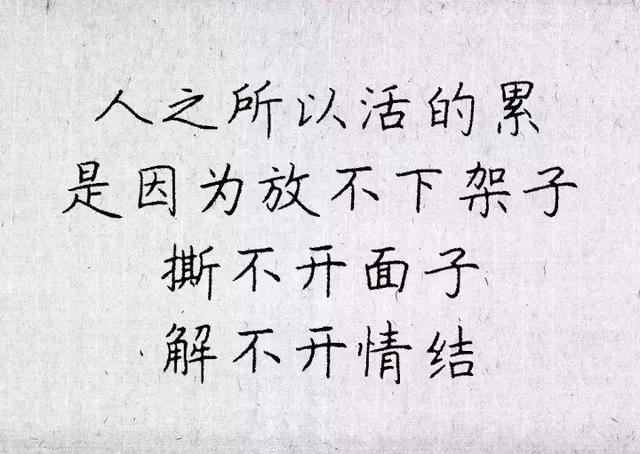 人之所以活的累
是因为放不下架子
撕不开面子
解不开情结